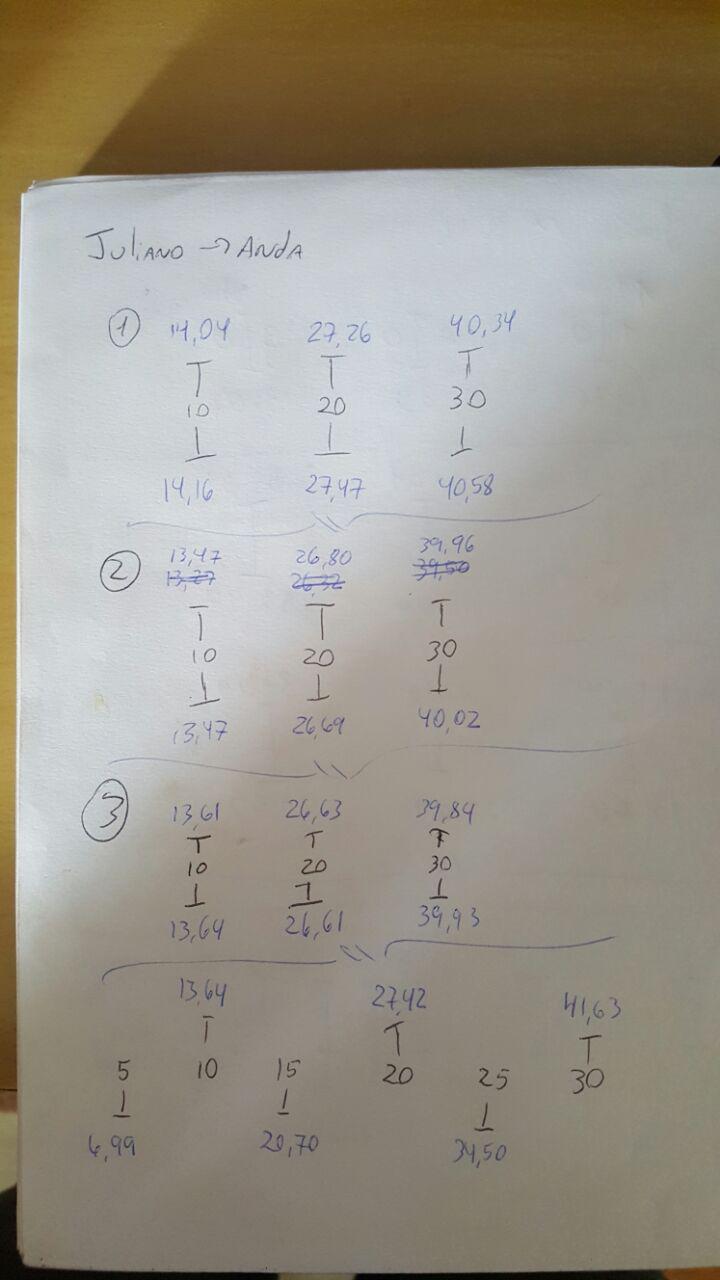 Juliano → Anda
① 14,04 27,26 40,34
10 20 30
14,16 27,47 40,58
② 13,47 26,80 39,96
13,27 26,32 39,50
10 20 30
13,47 26,69 40,02
③ 13,61 26,63 39,84
10 20 30
13,64 26,61 39,93
13,64 27,42 41,63
5 10 15 20 25 30
6,99 20,70 34,50